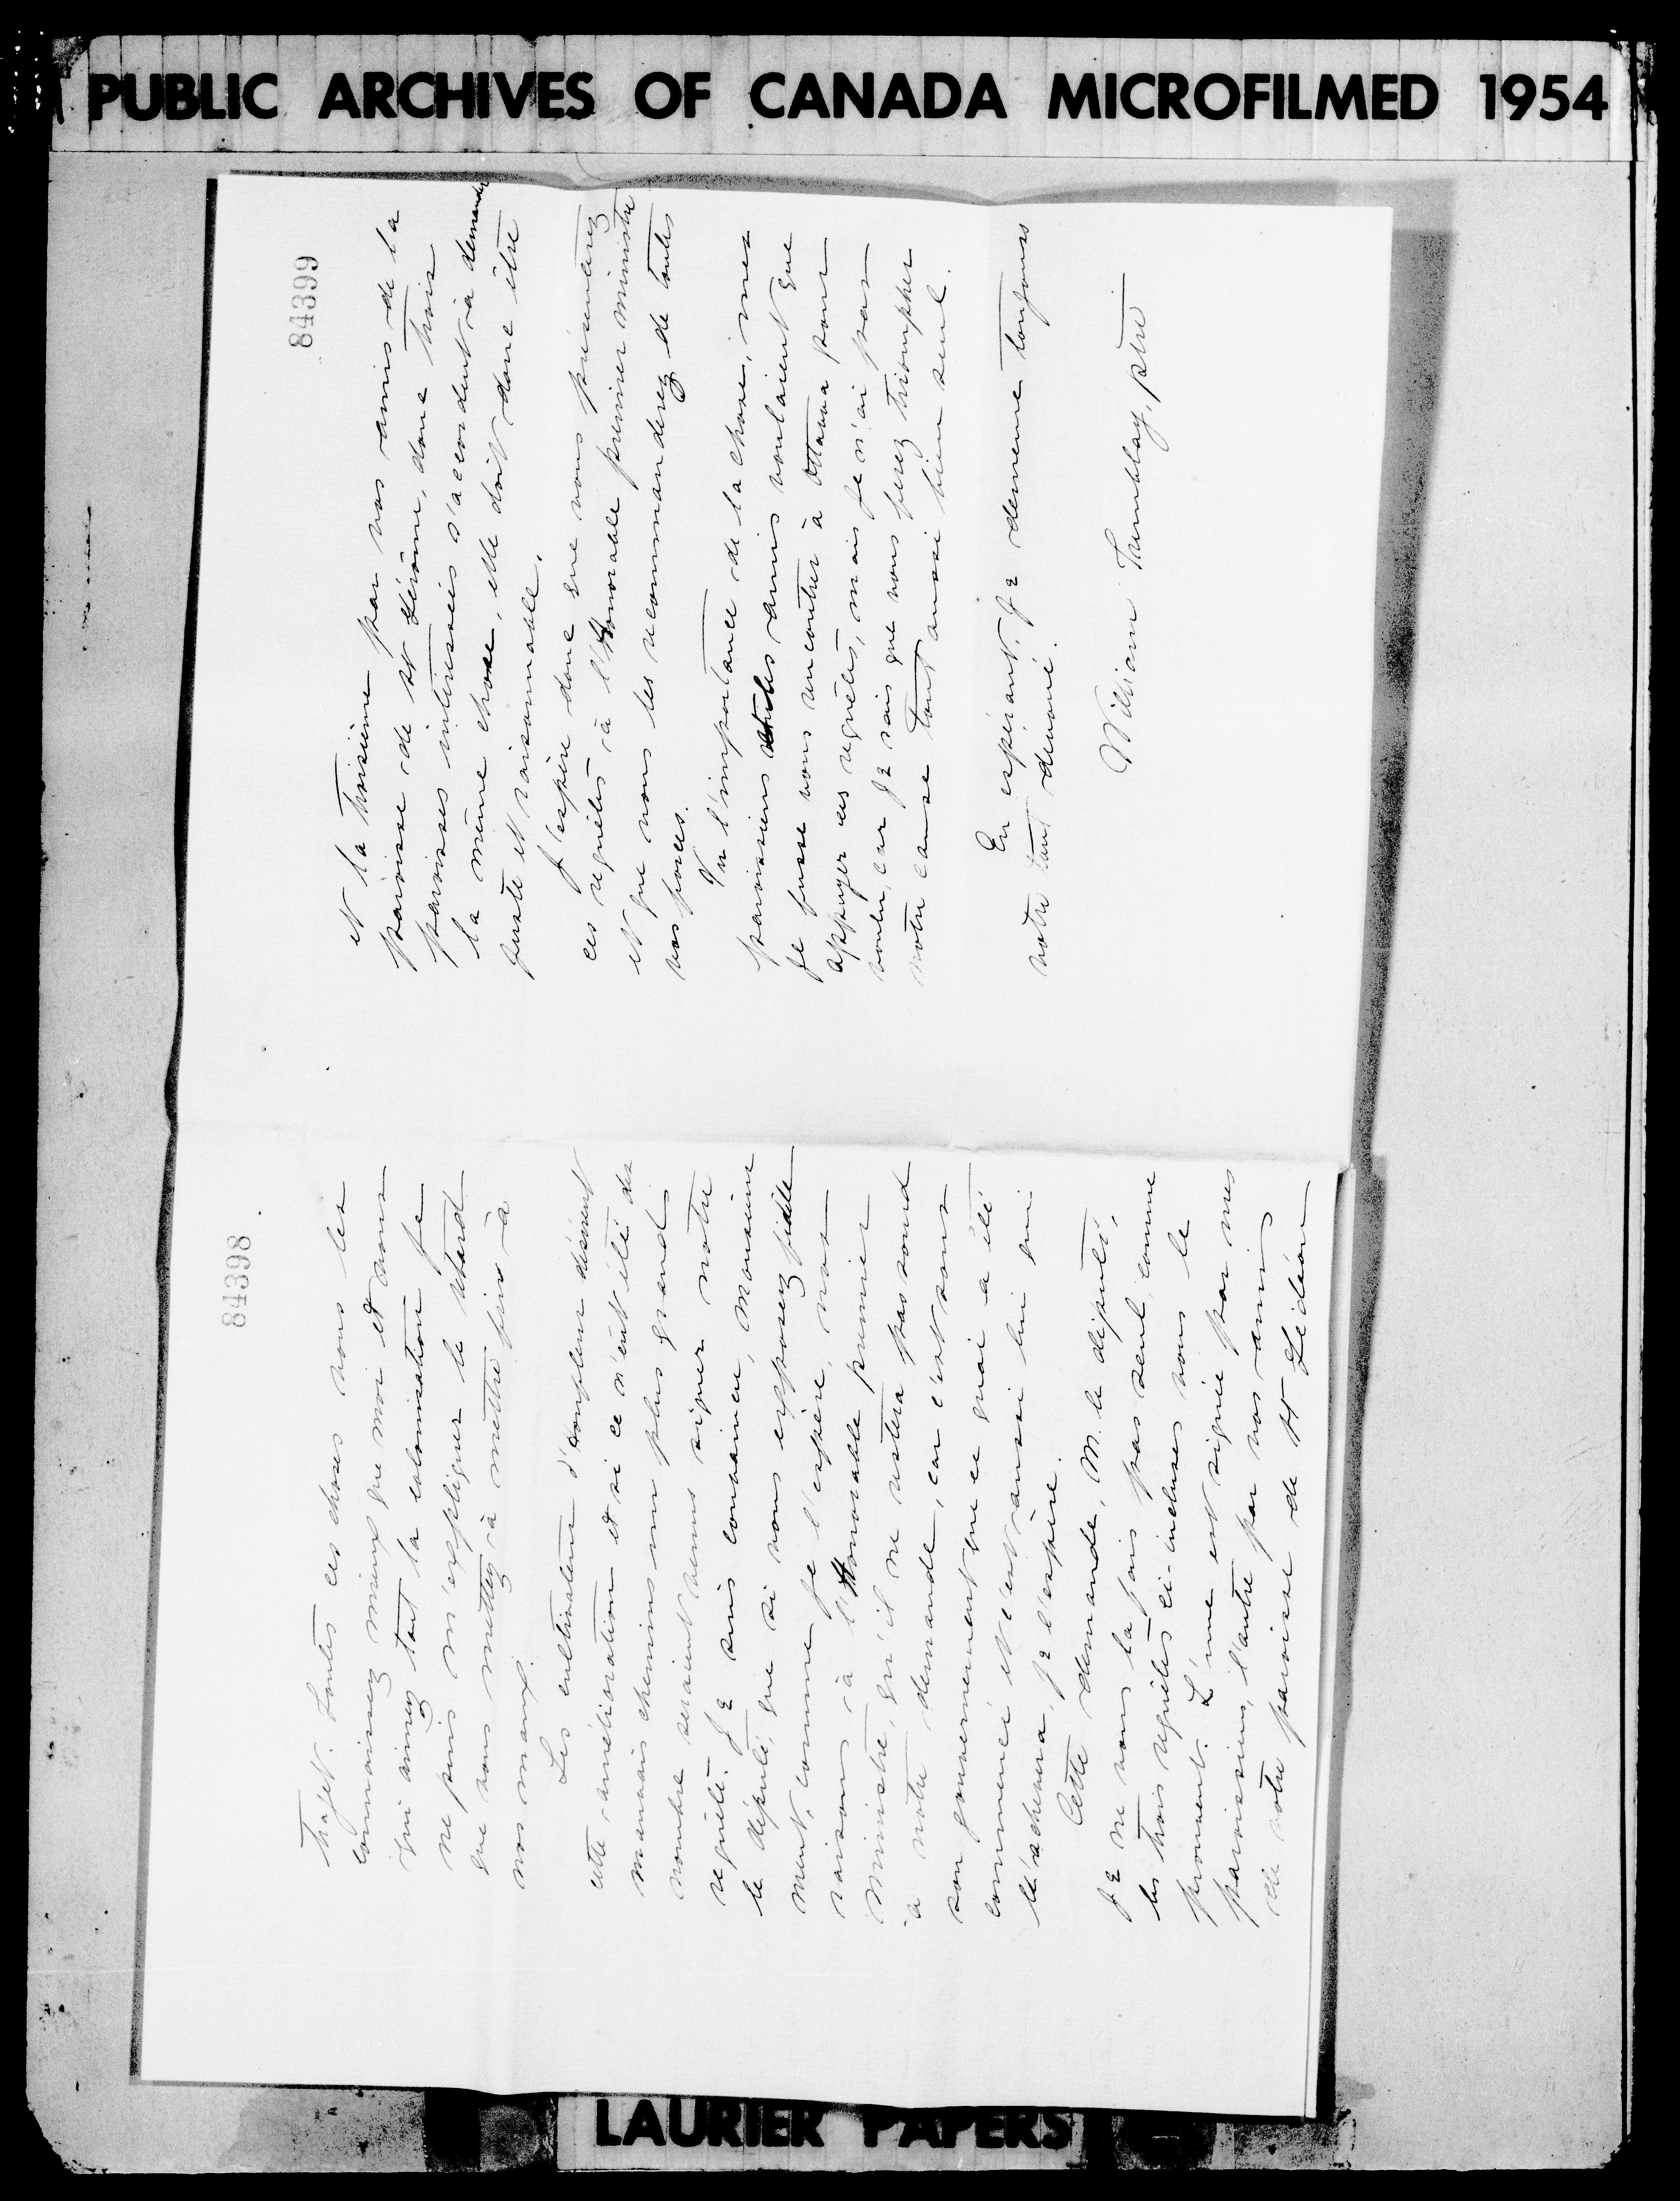 PUBLIC ARCHIVES OF CANADA MICROFILMED 1954
84398
trajet. Toutes ces choses vous les
connaissez mieux que moi et vous
qui aimez tant la colonisation je
ne puis m'expliquer le retard
que vous mettez à mettre fin à
nos maux.
Les cultivateurs d'ailleurs désirent
cette amélioration et si ce n'eût été des
mauvais chemins un plus grand
nombre seraient venus signer notre
requête. Je suis convaincu, Monsieur
le député, que si vous exposez fidèle
ment, comme je l'espère, nos
raisons à l'Honorable premier
ministre, qu'il ne restera pas sourd
à notre demande, car c'est sous
son gouvernement que ce quai a été
commencé et c'est aussi lui qui
l'achèvera, je l'espère.
Cette demande, M. le député,
je ne vous la fais pas seul, comme
les trois requêtes ci-incluses vous le
prouvent. L'une est signée par mes
paroissiens, l'autre par vos amis
de votre paroisse de St Gédéon
84399
et la troisième par vos amis de la
paroisse de St Jérôme, donc trois
paroisses intéressées s'accordent à demander
la même chose, elle doit donc être
juste et raisonnable.
J'espère donc que vous présenterez
ces requêtes à l'Honorable premier ministre
et que vous les recommanderez de toutes
vos forces.
Vu l'importance de la chose, mes
paroissiens amis voulaient que
je fusse vous rencontrer à Ottawa pour
appuyer ces requêtes, mais je n'ai pas
voulu, car je sais que vous ferez triompher
notre cause tout aussi bien seul.
En espérant. Je demeure toujours
votre tout dévoué.
William Tremblay, ptre
LAURIER PAPERS